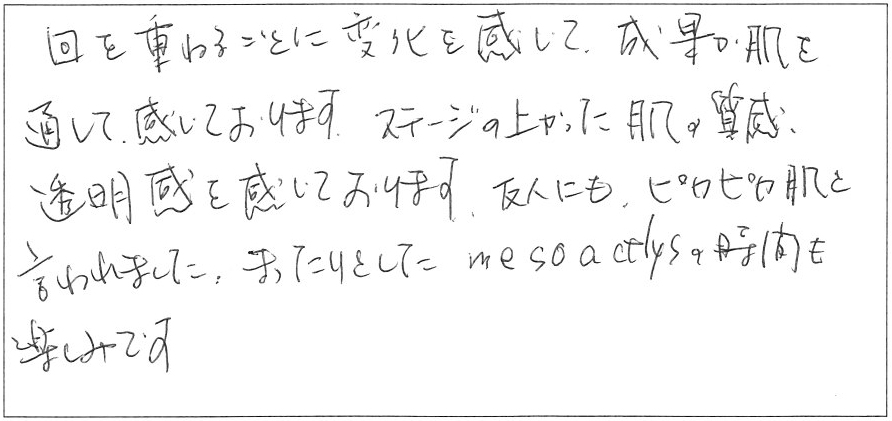 回を重ねるごとに変化を感じて、成果が肌を
通して、感じております。ステージの上がった肌の質感、
透明感を感じております。友人にも、ピカピカ肌と
言われました。まったりとした mesoactlysの時間も
楽しみです